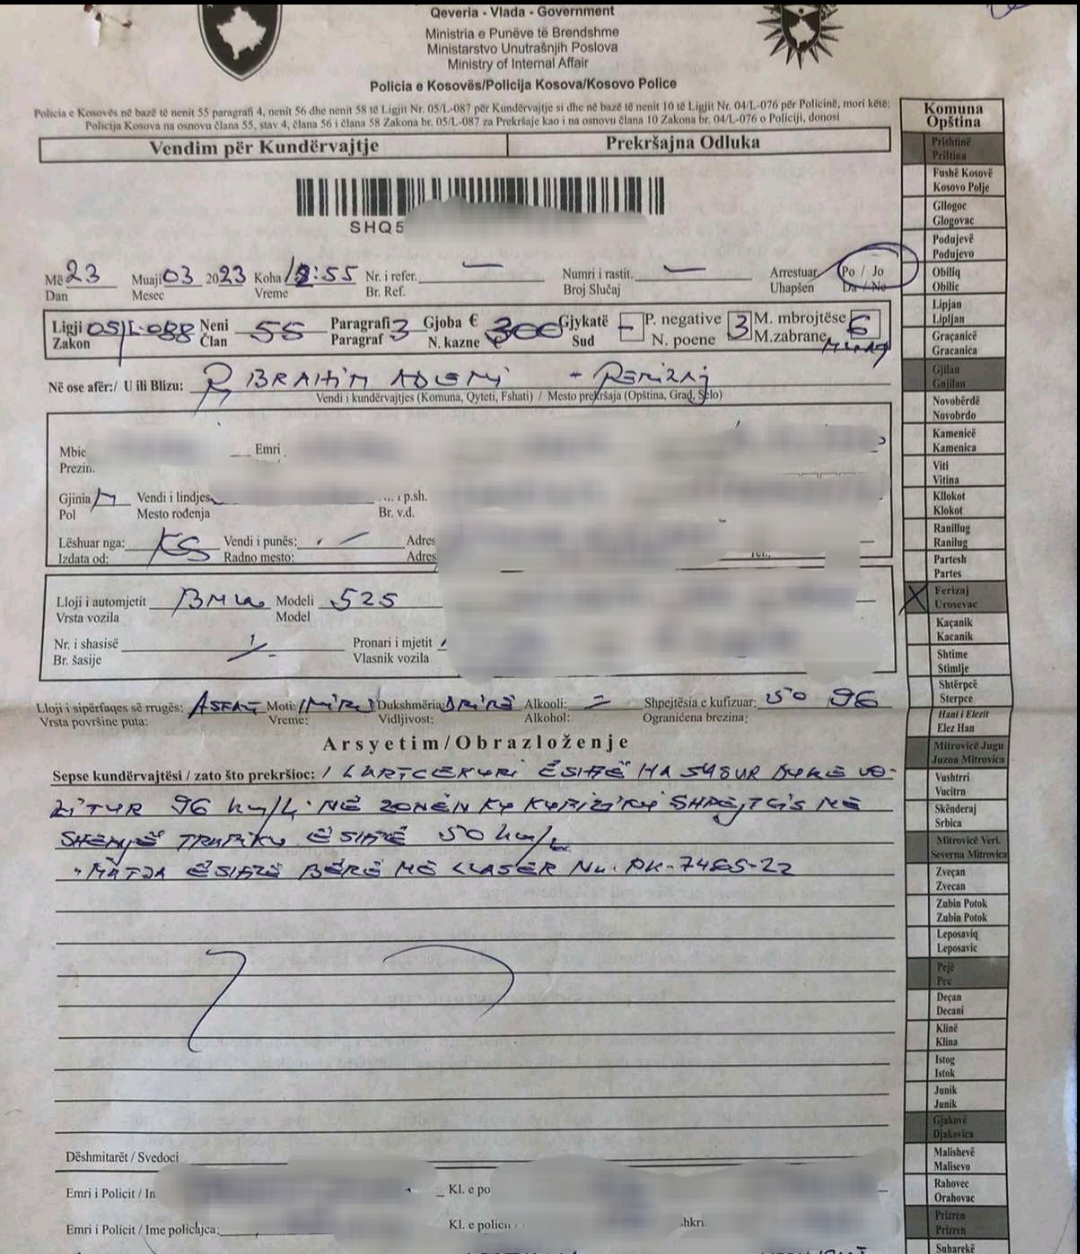 Qeveria - Vlada - Government
Ministria e Punëve të Brendshme
Ministarstvo Unutrašnjih Poslova
Ministry of Internal Affair
Policia e Kosovës/Policija Kosova/Kosovo Police
Policia e Kosovës në bazë të nenit 55 paragrafi 4, nenit 56 dhe nenit 58 të Ligjit Nr. 05/L-087 për Kundërvajtje si dhe në bazë të nenit 10 të Ligjit Nr. 04/L-076 për Policinë, mori këtë:
Policija Kosova na osnovu člana 55, stav 4, člana 56 i člana 58 Zakona br. 05/L-087 za Prekršaje kao i na osnovu člana 10 Zakona br. 04/L-076 o Policiji, donosi
Vendim për Kundërvajtje Prekršajna Odluka
SHQ5
Më 23 Muaji 03 2023 Koha :55 Nr. i refer. — Numri i rastit. — Arrestuar Po / Jo
Dan Mesec Vreme Br. Ref. Broj Slučaj Uhapšen Da / Ne
Ligji 05/L-088 Neni 55 Paragrafi 3 Gjoba € 300 Gjykatë - P. negative 3 M. mbrojtëse 6
Zakon Član Paragraf N. kazne € Sud N. poene M.zabrane
Në ose afër:/ U ili Blizu: BRAHIM ADEMI - FERIZAJ
Vendi i kundërvajtjes (Komuna, Qyteti, Fshati) / Mesto prekršaja (Opština, Grad, Selo)
Mbie Emri
Prezin.
Gjinia M Vendi i lindjes p.sh.
Pol Mesto rođenja Br. v.d.
Lëshuar nga: KS Vendi i punës: Adres
Izdata od: Radno mesto: Adres
Lloji i automjetit BMW Modeli 525
Vrsta vozila Model
Nr. i shasisë Pronari i mjetit
Br. šasije Vlasnik vozila
Lloji i sipërfaqes së rrugës: ASFALT Moti: MIRË Dukshmëria: MIRË Alkooli: Shpejtësia e kufizuar: 50 96
Vrsta površine puta: Vreme: Vidljivost: Alkohol: Ograničena brezina:
Arsyetim/Obrazloženje
Sepse kundërvajtësi / zato što prekršioc: I LARTCEKURI ËSHTË DUKE VO-
ZITUR 96 km/h NË ZONËN KU KUFIZIMI SHPEJTËS ME
SHENJË TRAFIKU ËSHTË 50 km/h
MATJA ËSHTË BËRË ME LLASER Nr. PK-7465-22
Dëshmitarët / Svedoci
Emri i Policit / In Kl. e po
Emri i Policit / Ime policajca: Kl. e policu .hkri.
Komuna
Opština
Prishtinë
Priština
Fushë Kosovë
Kosovo Polje
Gllogoc
Glogovac
Podujevë
Podujevo
Obiliq
Obilic
Lipjan
Lipljan
Graçanicë
Gracanica
Gjilan
Gnjilan
Novobërdë
Novobrdo
Kamenicë
Kamenica
Viti
Vitina
Kllokot
Klokot
Ranillug
Ranilug
Partesh
Partes
Ferizaj
Urosevac
Kaçanik
Kacanik
Shtime
Stimlje
Shtërpcë
Sterpce
Hani i Elezit
Elez Han
Mitrovicë Jugu
Juzna Mitrovica
Vushtrri
Vucitrn
Skënderaj
Srbica
Mitrovicë Veri.
Severna Mitrovica
Zveçan
Zvecan
Zubin Potok
Zubin Potok
Leposaviq
Leposavic
Pejë
Pec
Deçan
Decani
Klinë
Klina
Istog
Istok
Junik
Junik
Gjakovë
Djakovica
Malishevë
Malisevo
Rahovec
Orahovac
Prizren
Prizren
Suharekë